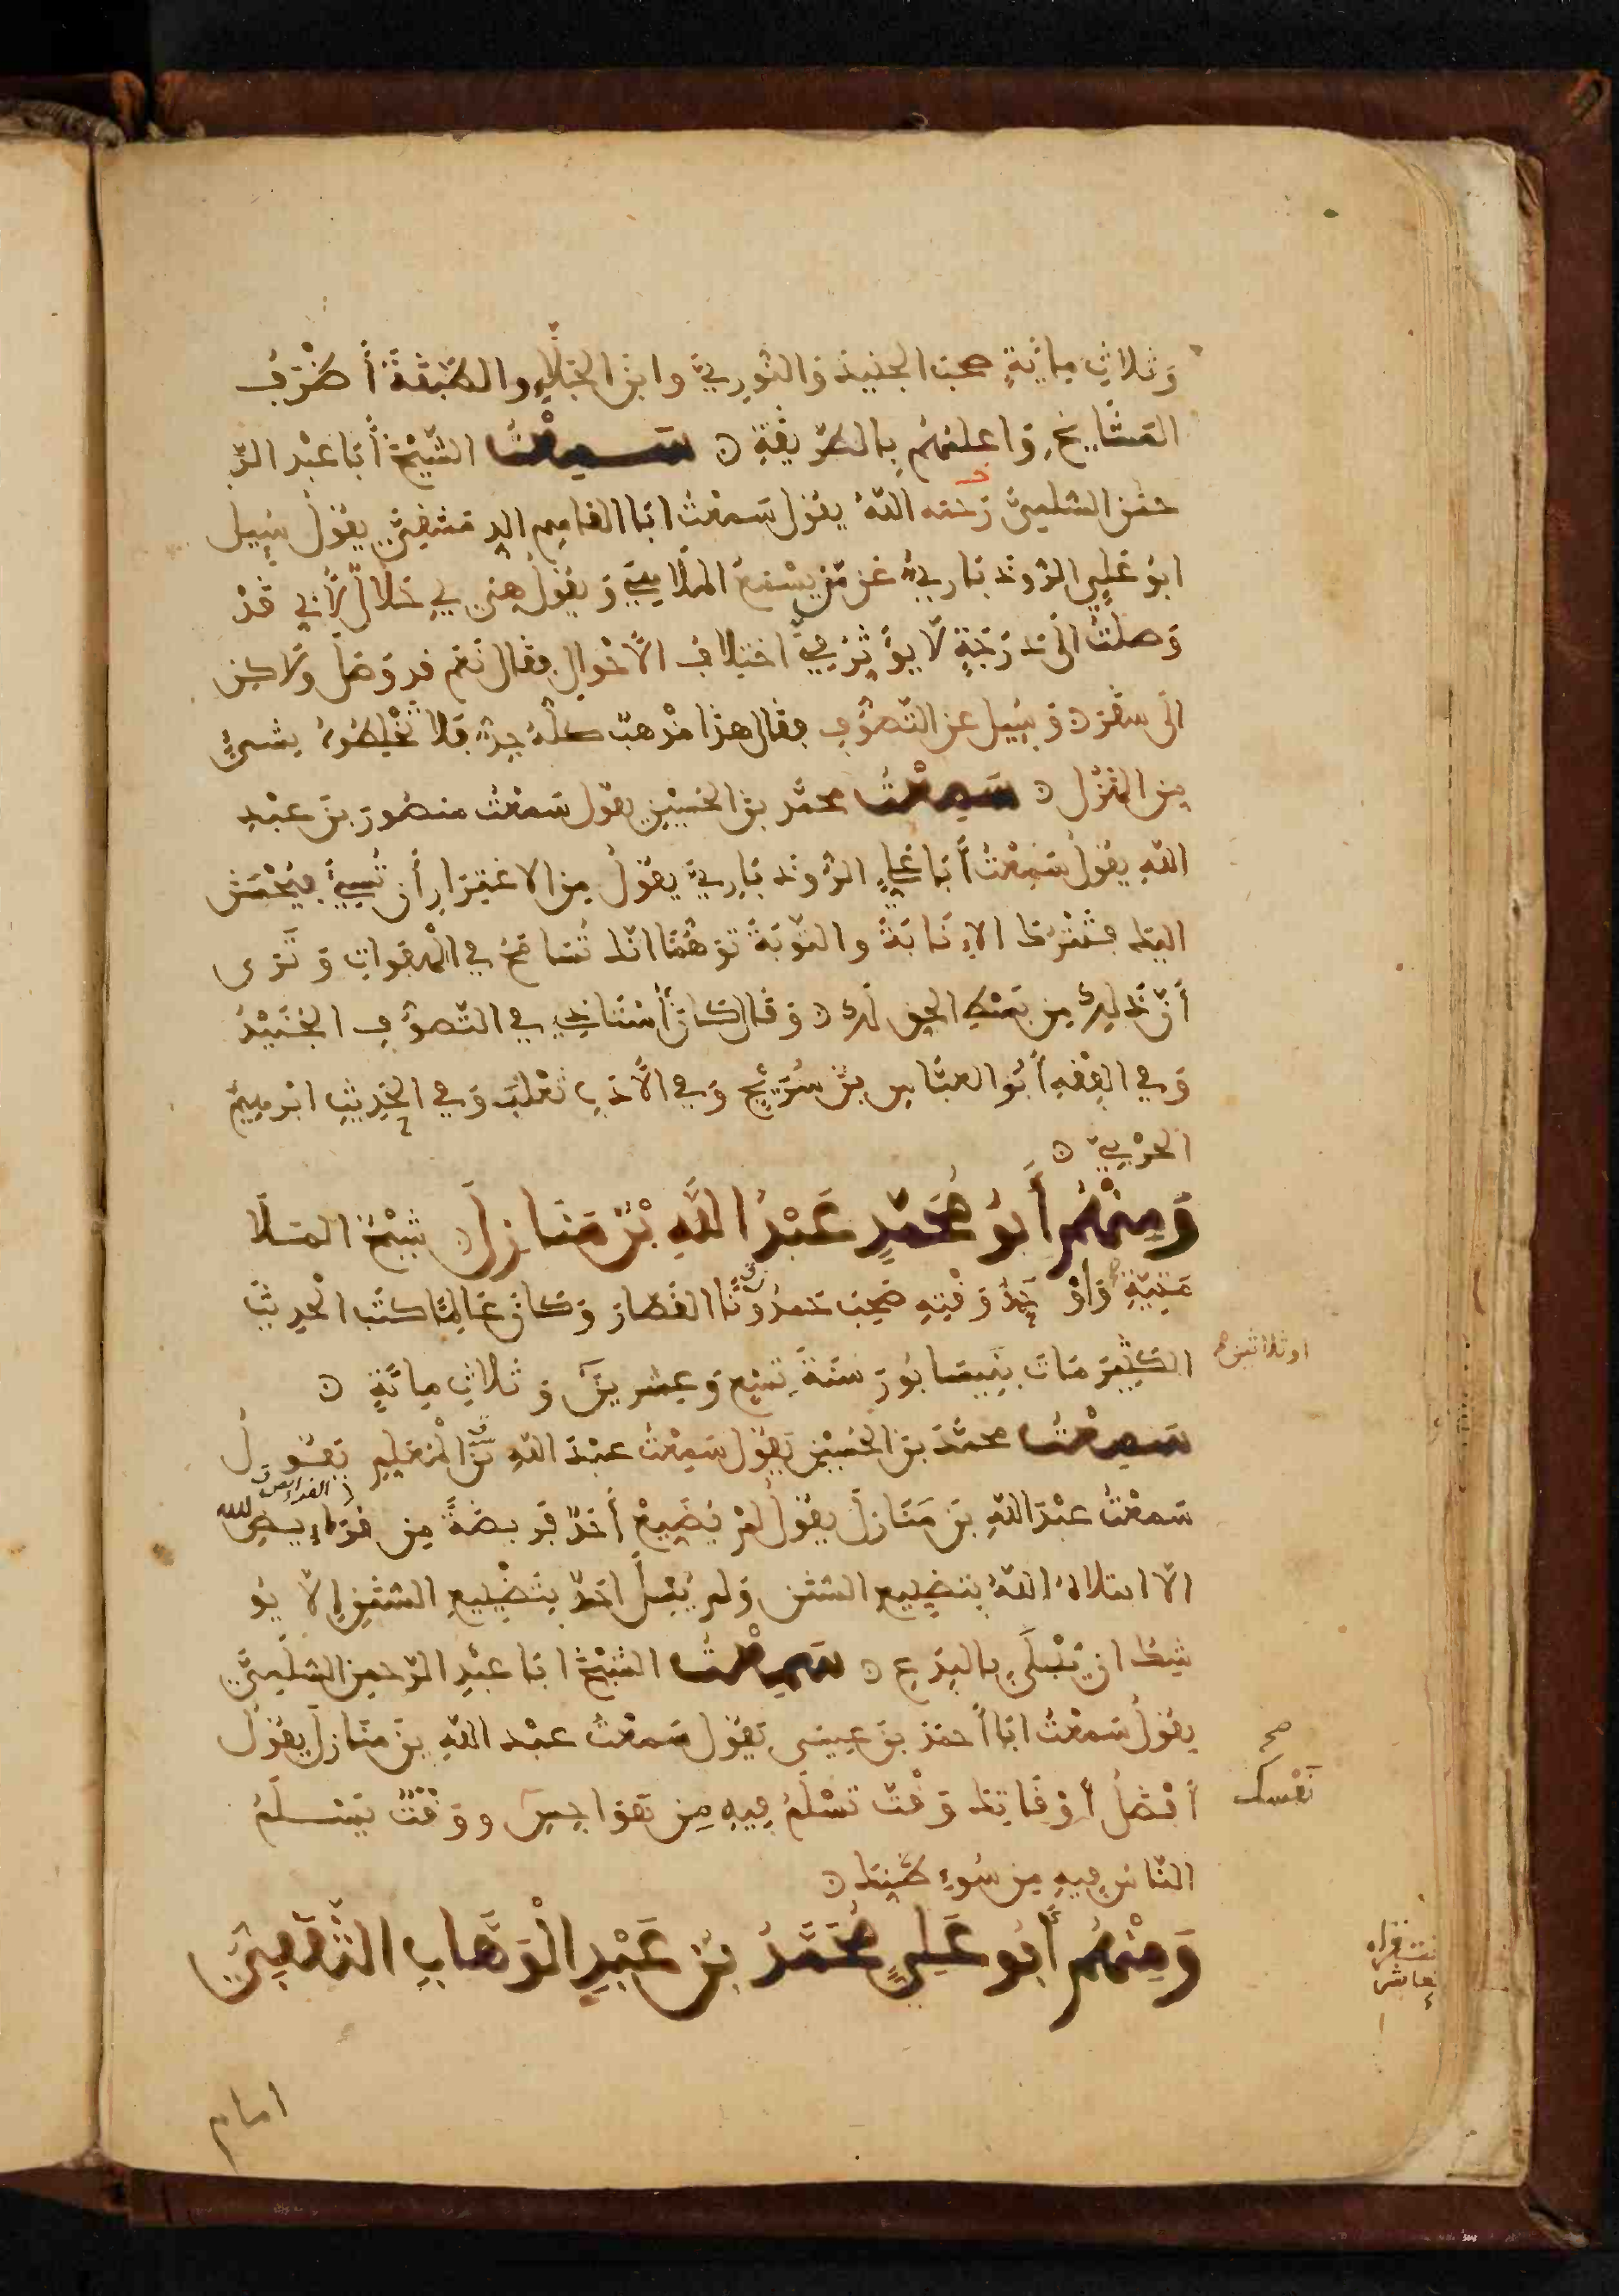 وَثلاثِ مِائَةٍ صحبَ الجنيدَ وَالنُّورِيَّ وابنَ الجَلَّاءِ والطَّبَقَةَ أَظْرَفُ
المَشَايِخِ وَاعلمُهُم بِالطَّرِيقَةِ ۝ سَمِعْتُ الشَّيْخَ أَبَا عَبْدِ الرَّ
حمَنِ السُّلَمِيَّ رَحمَه اللّٰهُ يقُول سَمعْتُ ابَا القاسِمِ الدِمَشقِيَّ يقُولُ سُيِل
ابوُ عَلِيٍ الرُّوذَبَارِيُّ عَن مَّن يسْمَعُ المَلَاهِيَ وَيقُولُ هِيَ لِي حَلَالٌ لِّأَنِي قَدْ
وَصلتُ الَى دَرَجَةٍ لَّا يُؤَثِرُ فِيَّ اختلافُ الأَحْوَالِ فقَال نَعم قد وَصَل وَلَاكِن
الَى سقَر ۝ وَسُيِل عن التَّصَوُّفِ فقَال هذَا مَذْهبٌ كلُّهُ جِدٌّ فَلَا تَخْلِطُوهُ بشَىْءٍ
مِن الهَزْلِ ۝ سَمِعْتُ محمَّدَ بنَ الحُسَيْنِ يقوُل سَمعْتُ منصُورَ بنَ عبْدِ
اللّٰهِ يقُولُ سَمِعْتُ أَبَا عَلِيٍ الرُّوذَبَارِيَّ يقوُلُ مِن الاغتِرَارِ أَن تُسِيءَ فيُحْسَنَ
اليْكَ فتَتْرُكَ الاِنَابَةَ والتَّوْبَةَ تَوَهُّمًا انَّكَ تُسَامَحُ فِي الْهفَواتِ وَتَرَى
أَنَّ ذَلِكَ مِن بَسْطِ الحقِ لَكَ ۝ وَقَال كَانَ أُسْتَاذِي فِي التَّصوُّفِ الجُنَيْدُ
وَفِي الفِقْهِ أَبُو العبَّاسِ بْنُ سُرَيْجٍ وَفِي الأَدَبِ ثَعْلَبٌ وَفِي الحَدِيثِ ابْرٰهِيمُ
الحَرْبِيُّ ۝
وَمِنْهُم أَبُو مُحَمَّدٍ عَبْدُ اللّٰهِ بْنُ مَنَازِلَ ۝ شَيْخُ المَلَا
مَتِيَّةِ وَأَوْحَدُ وَقْتِهِ صَحِبَ حَمدُونًا القصَّارَ وَكَانَ عَالِمًا كتَبَ الْحدِيثَ
الكَثِيرَ مَاتَ بِنَيسَابُورَ سَنَةَ تِسْعٍ وَعِشرِينَ وَثلَاثِ مِائَةٍ ۝
او ثلاثين صح
سَمِعْتُ محمَّدَ بنَ الحُسَيْنِ يَقُول سَمِعْتُ عبْدَ اللّٰهِ بْنَ الْمُعَلِّمِ يَقُولُ
سَمعْتُ عبْدَ اللّٰهِ بنَ مَنَازِلَ يقُولُ لَمْ يُضَيِّعْ أَحَدٌ فَرِيضَةً مِن الفرائض
الا ابتلاهُ اللّٰهُ بتَضْيِيعِ السُّنَنِ وَلَم يُبْلَ احَدٌ بِتَضْيِيعِ السُّنَنِ الَّا يُو
شِكُ ان يُبْتَلَى بالبِدَعِ ۝ سَمِعْتُ الشَّيْخَ ابَا عبْدِ الرَّحمنِ السُّلَمِيَّ
يقُولُ سَمعْتُ ابَا أَحمدَ بنَ عيسَى يَقُولُ سَمعْتُ عبْدَ اللّٰهِ بنَ مَنَازِلَ يقُولُ
أَفْضَلُ أَوْقَاتِكَ وَقْتٌ تَسْلَمُ فِيهِ مِن هَوَاجِسِ ووَقْتٌ يَسْلَمُ
نَفْسِكَ صح
النَّاسُ فِيهِ مِن سُوءِ ظَنِّكَ ۝
وَمِنْهُم أَبُو عَلِيٍ مُحَمَّدُ بْنُ عَبْدِ الْوَهَّابِ الثَّقَفِيُّ
امام